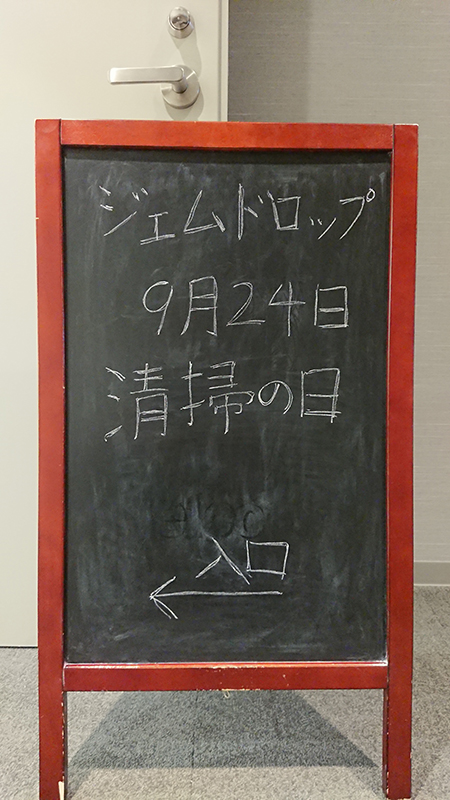 ジェムドロップ
9月24日
清掃の日
入口
←